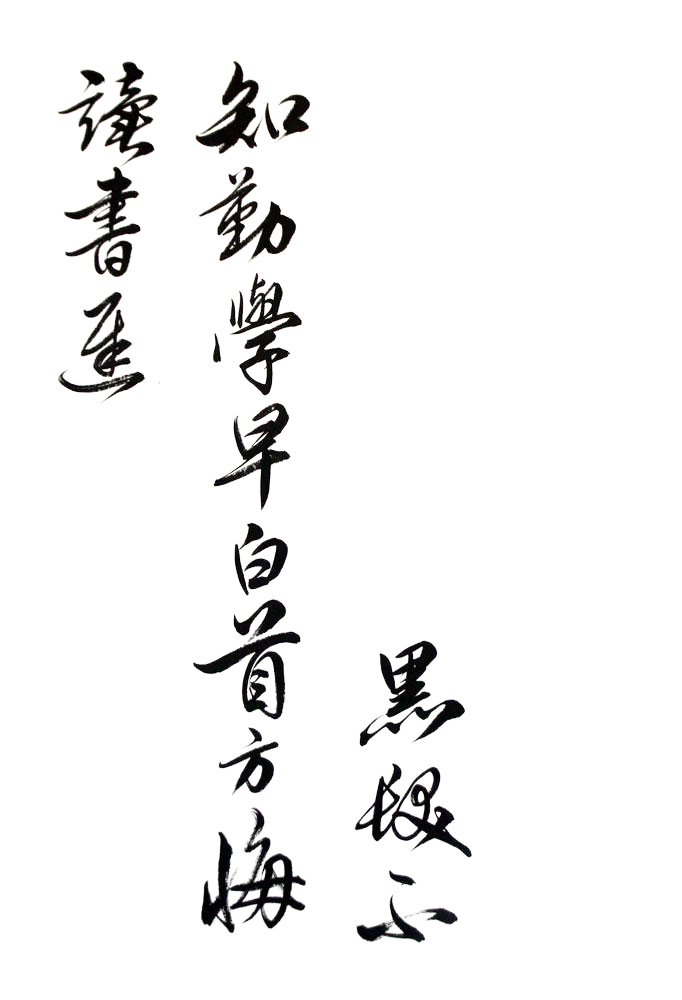 黑髮不
知勤學早白首方悔
讀書遲